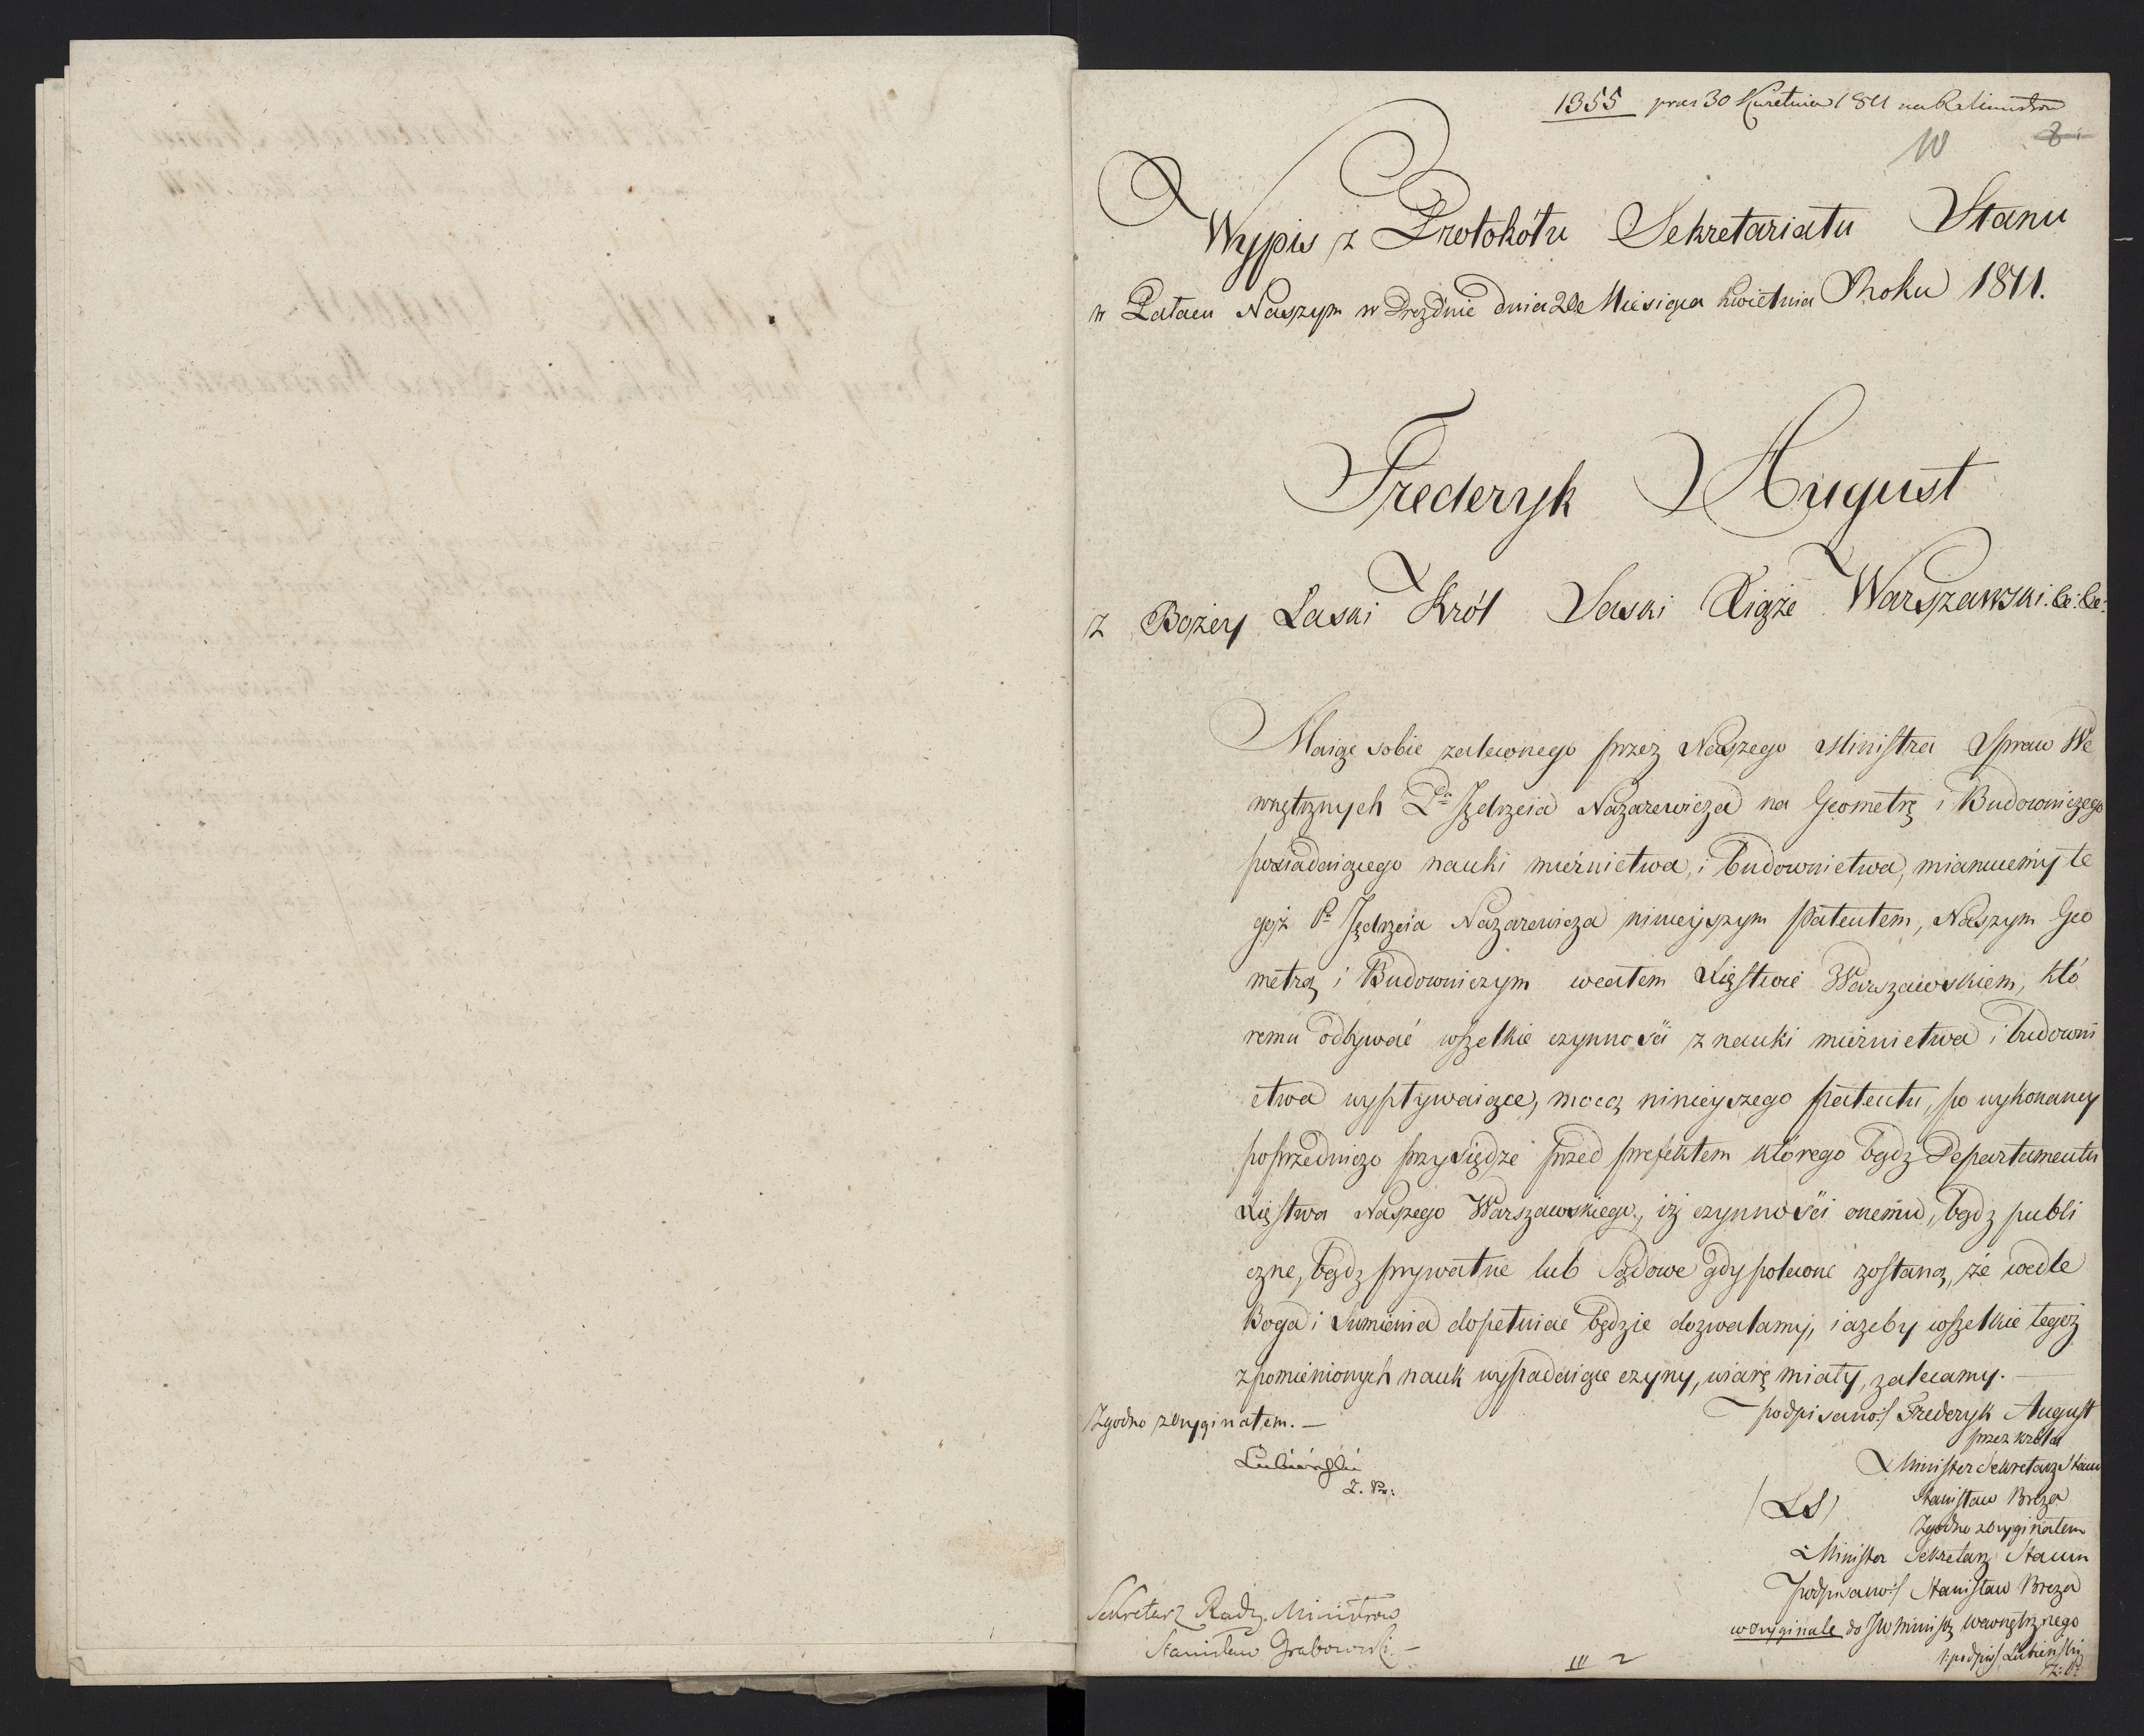 1355 pras 30 Kwietnia 1811 na R. Ministrow
10 8
Wypis z Protokółu Sekretariatu Stanu
w Pałacu Naszym w Dreźnie dnia Miesiąca Kwietnia Roku 1811.
Frederyk August
z Bożey Łaski Król Saski Xiąże Warszawski. &c: &c:
Maiąc sobie zaleconego przez Naszego Ministra Spraw We
wnętrznych Pa Jędrzeia Nazarewicza na Geometrę i Budowniczego
posiadaiącego nauki miernictwa, i budownictwa, mianuiemy te
goż Pa Jędrzeia Nazarewicza ninieyszym patentem, Naszym Geo
metrą i Budowniczym wcałem Xięstwie Warszawskiem, któ
remu odbywać wszelkie czynności z nauki miernictwa i budowni
ctwa wypływaiące, mocą ninieyszego patentu, po wykonaney
poprzedniczo przysiędze przed prefektem którego bądz Departamentu
Xięstwa Naszego Warszawskiego, iż czynności onemu, bądz publi
czne, bądz prywatne lub Sądowe gdy polecone zostaną, że wedle
Boga i Sumienia dopełniac będzie dozwalamy, i ażeby wszelkie tegoż
z pomienionych nauk wypadaiące czyny, wiarę miały, zalecamy. —
Zgodno z oryginałem. —
Lubieński
Z. Pr:
podpisano:/ Frederyk August
przez króla
Minister Sekretarz Stanu
(LS) Stanisław Breza
Zgodno z oryginałem
Minister Sekretarz Stanu
podpisano:/ Stanisław Breza
w oryginale do JW Ministr wewnętrznego
podpis/ Lubieński
Z: Pr
Sekretarz Rady Ministrow
Stanisław Grabowski —
III 2